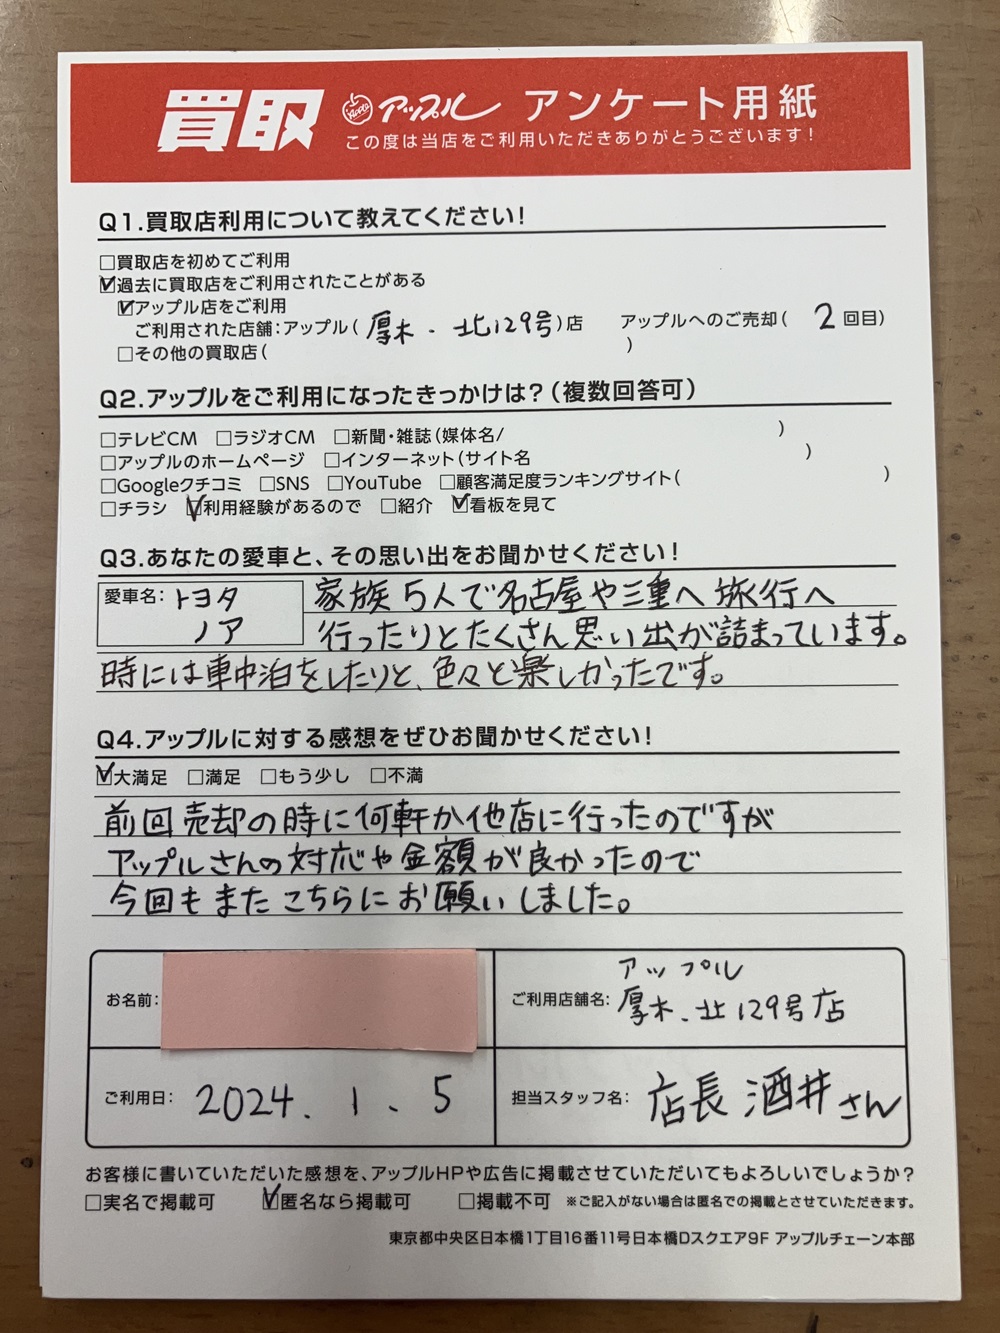 買取 アップル アンケート用紙
この度は当店をご利用いただきありがとうございます！
Q1.買取店利用について教えてください！
□買取店を初めてご利用
☑過去に買取店をご利用されたことがある
☑アップル店をご利用
ご利用された店舗：アップル（厚木・北129号）店 アップルへのご売却（ 2 回目）
□その他の買取店（ ）
Q2.アップルをご利用になったきっかけは？（複数回答可）
□テレビCM □ラジオCM □新聞・雑誌（媒体名/ ）
□アップルのホームページ □インターネット（サイト名 ）
□Googleクチコミ □SNS □YouTube □顧客満足度ランキングサイト（ ）
□チラシ ☑利用経験があるので □紹介 ☑看板を見て
Q3.あなたの愛車と、その思い出をお聞かせください！
愛車名：トヨタ 家族5人で名古屋や三重へ旅行へ
ノア 行ったりとたくさん思い出が詰まっています。
時には車中泊をしたりと、色々と楽しかったです。
Q4.アップルに対する感想をぜひお聞かせください！
☑大満足 □満足 □もう少し □不満
前回売却の時に何軒か他店に行ったのですが
アップルさんの対応や金額が良かったので
今回もまたこちらにお願いしました。
お名前： ご利用店舗名： アップル
厚木・北129号店
ご利用日： 2024. 1. 5 担当スタッフ名： 店長 酒井さん
お客様に書いていただいた感想を、アップルHPや広告に掲載させていただいてもよろしいでしょうか？
□実名で掲載可 ☑匿名なら掲載可 □掲載不可 ※ご記入がない場合は匿名での掲載とさせていただきます。
東京都中央区日本橋1丁目16番11号日本橋Dスクエア9F アップルチェーン本部